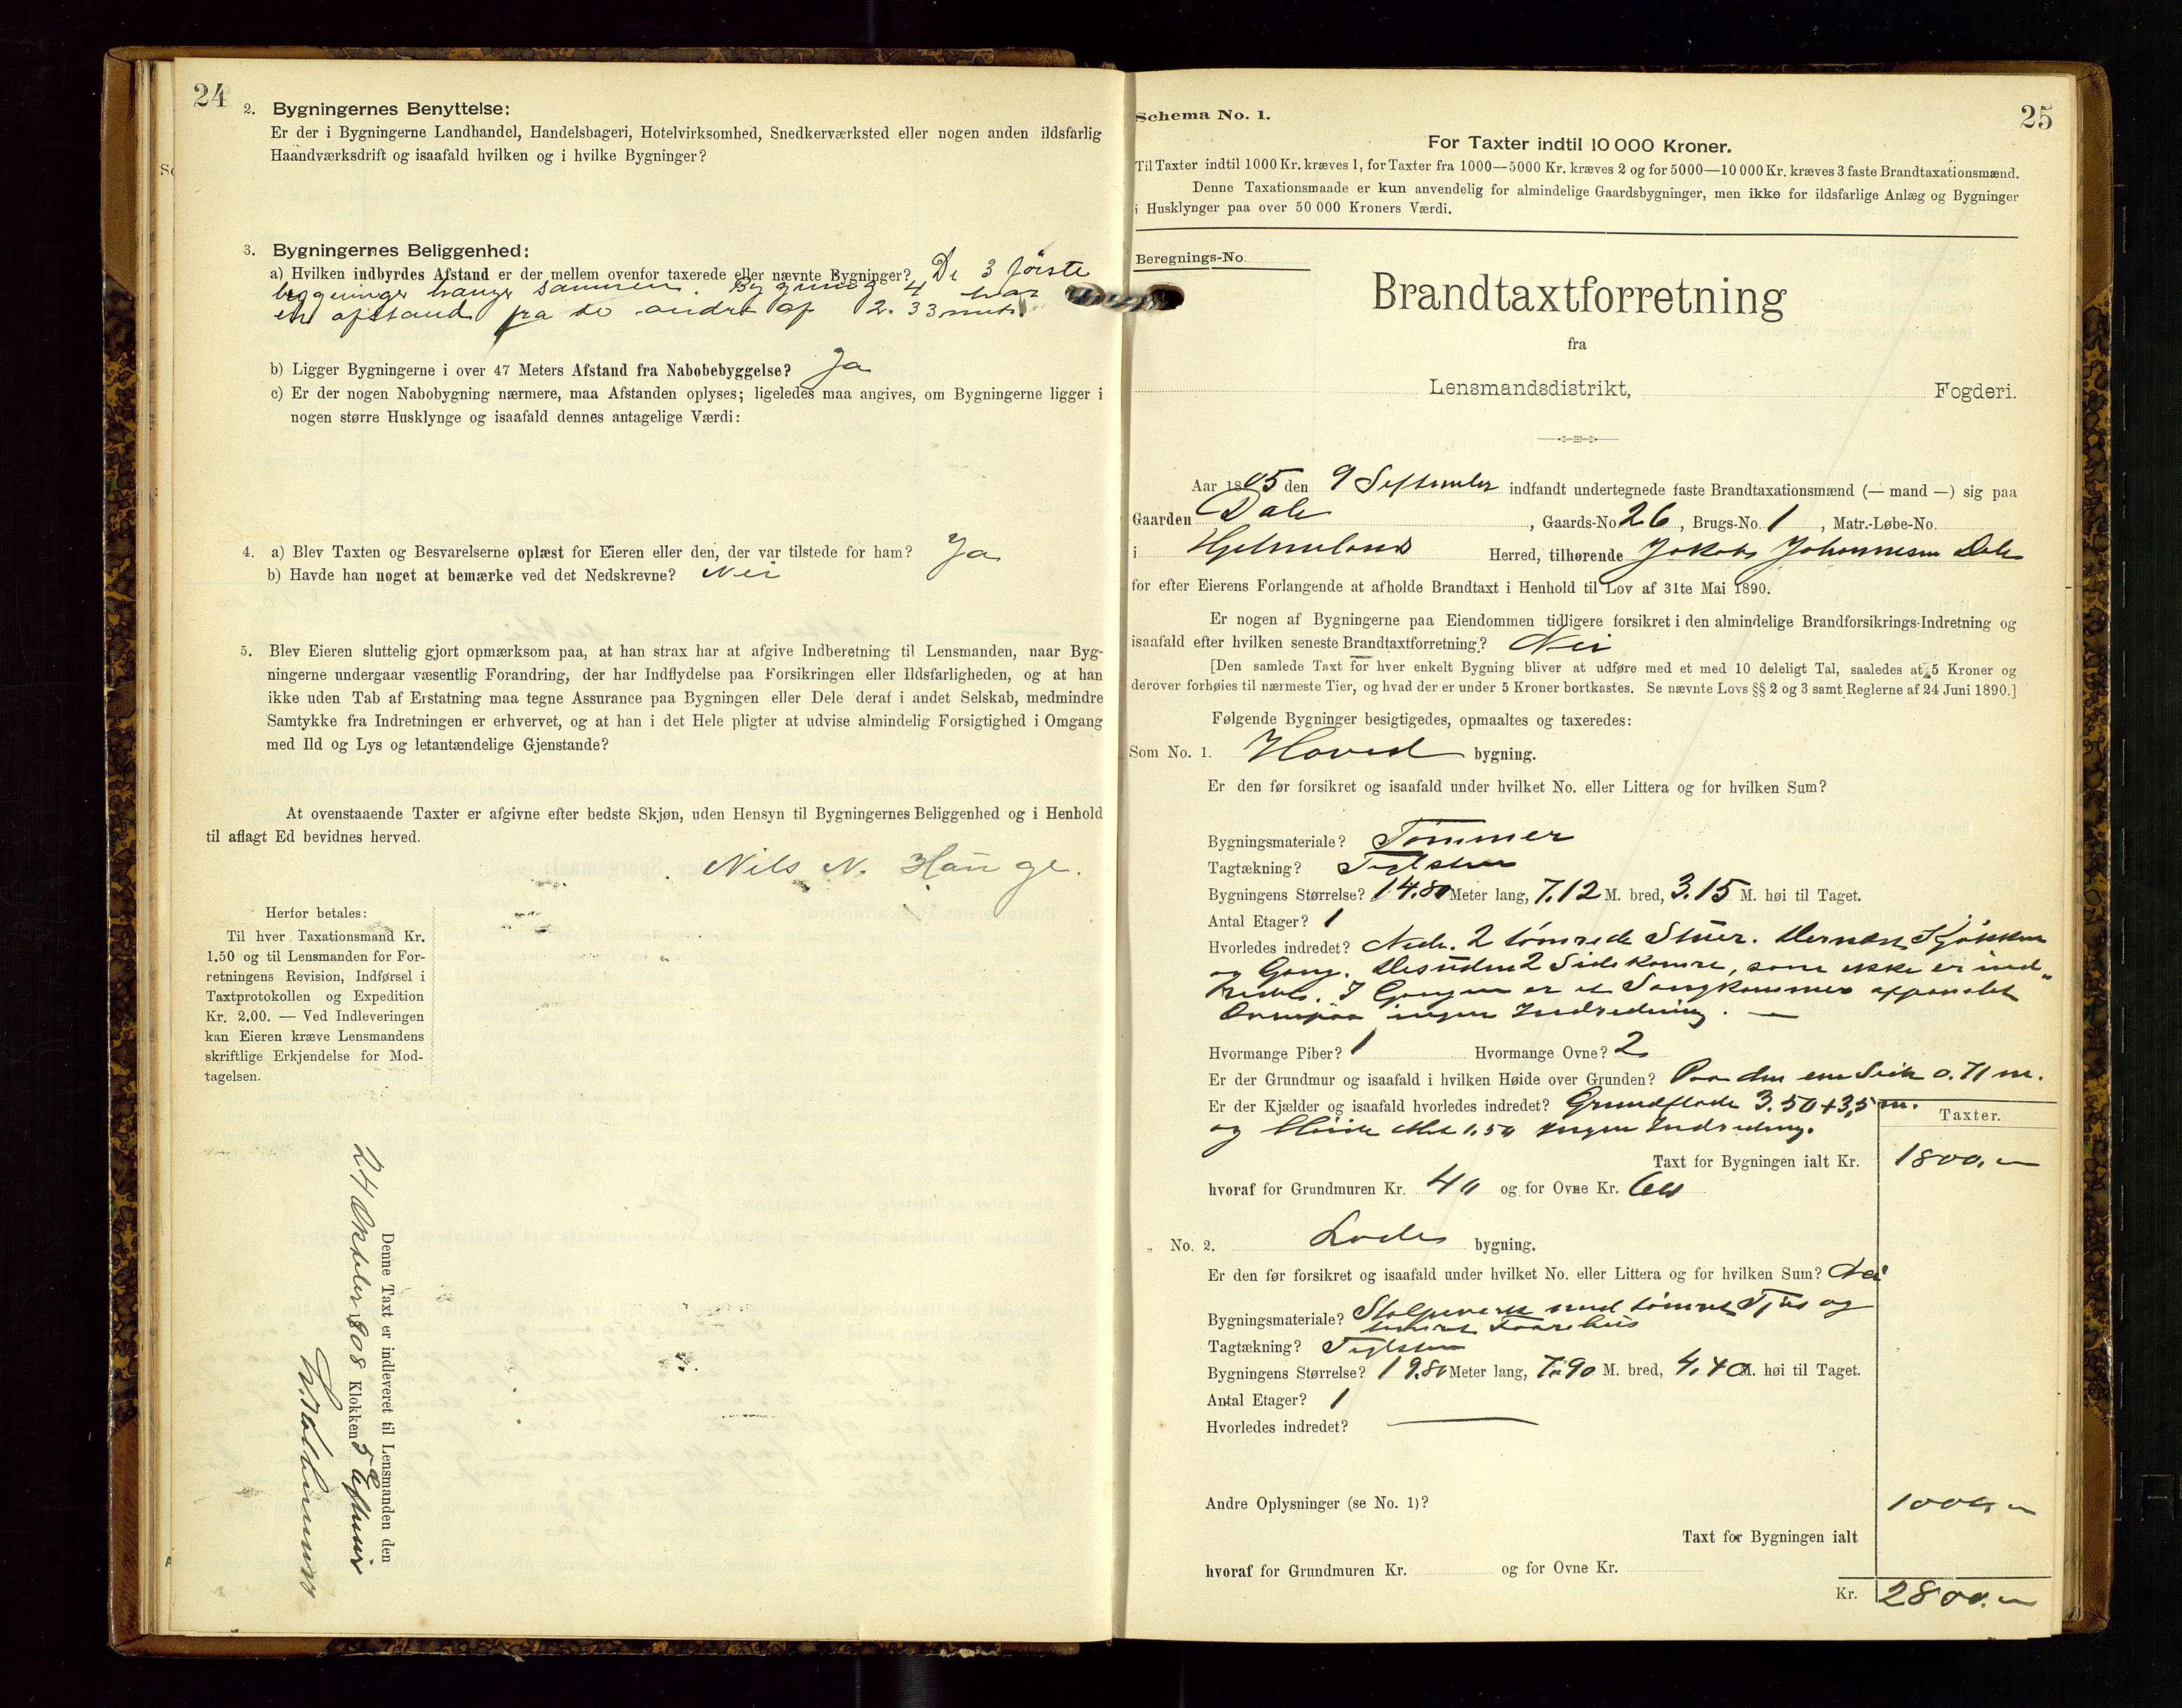 24
2. Bygningernes Benyttelse:
Er der i Bygningerne Landhandel, Handelsbageri, Hotelvirksomhed, Snedkerværksted eller nogen anden ildsfarlig
Haandværksdrift og isaafald hvilken og i hvilke Bygninger?
3. Bygningernes Beliggenhed:
a) Hvilken indbyrdes Afstand er der mellem ovenfor taxerede eller nævnte Bygninger? De 3 første
bygninger hange sammen. Bygning 4 har
en afstand fra de andre af 2.33 mtr.
b) Ligger Bygningerne i over 47 Meters Afstand fra Nabobebyggelse? Ja
c) Er der nogen Nabobygning nærmere, maa Afstanden oplyses; ligeledes maa angives, om Bygningerne ligger i
nogen større Husklynge og isaafald dennes antagelige Værdi:
4. a) Blev Taxten og Besvarelserne oplæst for Eieren eller den, der var tilstede for ham? Ja
b) Havde han noget at bemærke ved det Nedskrevne? Nei
5. Blev Eieren sluttelig gjort opmærksom paa, at han strax har at afgive Indberetning til Lensmanden, naar Byg-
ningerne undergaar væsentlig Forandring, der har Indflydelse paa Forsikringen eller Ildsfarligheden, og at han
ikke uden Tab af Erstatning maa tegne Assurance paa Bygningen eller Dele deraf i andet Selskab, medmindre
Samtykke fra Indretningen er erhvervet, og at han i det Hele pligter at udvise almindelig Forsigtighed i Omgang
med Ild og Lys og letantændelige Gjenstande?
At ovenstaaende Taxter er afgivne efter bedste Skjøn, uden Hensyn til Bygningernes Beliggenhed og i Henhold
til aflagt Ed bevidnes herved.
Nils N. Hauge.
Herfor betales:
Til hver Taxationsmand Kr.
1.50 og til Lensmanden for For-
retningens Revision, Indførsel i
Taxtprotokollen og Expedition
Kr. 2.00. — Ved Indleveringen
kan Eieren kræve Lensmandens
skriftlige Erkjendelse for Mod-
tagelsen.
Denne Taxt er indleveret til Lensmanden den
24 Oktober 1908 Klokken 5 Efterm
25
Schema No. 1.
For Taxter indtil 10 000 Kroner.
Til Taxter indtil 1000 Kr. kræves 1, for Taxter fra 1000—5000 Kr. kræves 2 og for 5000—10 000 Kr. kræves 3 faste Brandtaxationsmænd.
Denne Taxationsmaade er kun anvendelig for almindelige Gaardsbygninger, men ikke for ildsfarlige Anlæg og Bygninger
i Husklynger paa over 50 000 Kroners Værdi.
Beregnings-No.
Brandtaxtforretning
fra
Lensmandsdistrikt, Fogderi.
Aar 1805 den 9 September indfandt undertegnede faste Brandtaxationsmænd (— mand —) sig paa
Gaarden Dale, Gaards-No 26, Brugs-No. 1, Matr.-Løbe-No.
i Hjelmeland Herred, tilhørende Jakob Johannesen Dale
for efter Eierens Forlangende at afholde Brandtaxt i Henhold til Lov af 31te Mai 1890.
Er nogen af Bygningerne paa Eiendommen tidligere forsikret i den almindelige Brandforsikrings-Indretning og
isaafald efter hvilken seneste Brandtaxtforretning? Nei
[Den samlede Taxt for hver enkelt Bygning bliver at udføre med et med 10 deleligt Tal, saaledes at 5 Kroner og
derover forhøies til nærmeste Tier, og hvad der er under 5 Kroner bortkastes. Se nævnte Lovs §§ 2 og 3 samt Reglerne af 24 Juni 1890.]
Følgende Bygninger besigtigedes, opmaaltes og taxeredes:
Som No. 1. Hoved bygning.
Er den før forsikret og isaafald under hvilket No. eller Littera og for hvilken Sum?
Bygningsmateriale? Tømmer
Tagtækning? Teglsten
Bygningens Størrelse? 14.80 Meter lang, 7.12 M. bred, 3.15 M. høi til Taget.
Antal Etager? 1
Hvorledes indredet? Nede. 2 tømrede Stuer. Dernæst Kjøkken
og Gang. Desuden 2 Sidekamre, som ikke er ind-
redet. I Gangen er et Sengkammer afpanelet
Ovenpaa ingen Indredning. —
Hvormange Piber? 1 Hvormange Ovne? 2
Er der Grundmur og isaafald i hvilken Høide over Grunden? Paa den ene Side 0.71 m.
Er der Kjælder og isaafald hvorledes indredet? Grundflade 3.50+3,5 m.
og Høide Met 1.50 ingen Indredning.
Taxter.
Taxt for Bygningen ialt Kr. 1800.—
hvoraf for Grundmuren Kr. 40 og for Ovne Kr. 60
„ No. 2. Lade bygning.
Er den før forsikret og isaafald under hvilket No. eller Littera og for hvilken Sum? Nei
Bygningsmateriale? Stolpeverk med tømret Fjøs og
tømret Faarehus
Tagtækning? Teglsten
Bygningens Størrelse? 19.80 Meter lang, 7.90 M. bred, 4.40 M. høi til Taget.
Antal Etager? 1
Hvorledes indredet? —
Andre Oplysninger (se No. 1)? 1000.—
Taxt for Bygningen ialt
hvoraf for Grundmuren Kr. og for Ovne Kr.
Kr. 2800.—